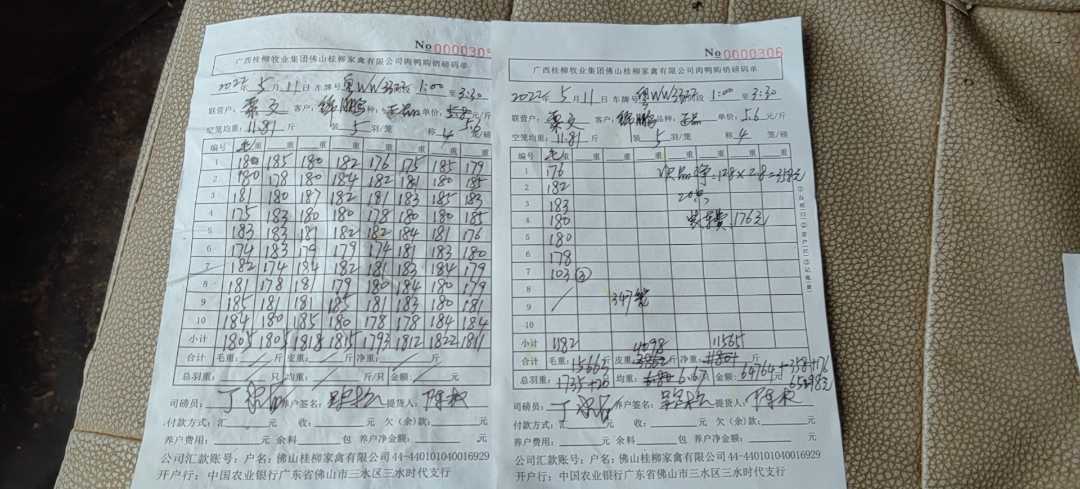 No 000030
广西桂柳牧业集团佛山桂柳家禽有限公司肉鸭购销磅码单
2022年5月11日 车牌号 粤WW 时段 1:00 至 3:30
联营户: 客户: 鹏 品种: 正品 单价: 5.6 元/斤
空笼均重: 11.81 斤 装 5 羽/笼 称 4 笼/磅
编号 毛重 重 重 重 重 重 重 重
1 180 185 180 182 176 175 185 179
2 180 178 180 184 182 181 180 185
3 181 180 187 182 181 183 185 183
4 175 183 180 180 178 180 180 185
5 183 183 181 182 182 184 181 176
6 174 183 179 179 174 181 183 180
7 182 174 184 182 181 183 184 179
8 181 178 181 179 180 184 180 179
9 185 181 181 185 181 183 180 181
10 184 180 185 180 178 178 184 184
小计 1805 1805 1818 1815 1793 1812 1822 1811
合计 毛重: 斤 皮重: 斤 净重: 斤
总羽重: 只 均重: 斤/只 金额: 元
司磅员: 丁 养户签名: 提货人:
付款方式: 汇 元 收: 元 欠(余)款: 元
养户费用: 元 余料 包 养户净金额: 元
公司汇款账号: 户名: 佛山桂柳家禽有限公司 44-440101040016929
开户行: 中国农业银行广东省佛山市三水区三水时代支行
No 0000306
广西桂柳牧业集团佛山桂柳家禽有限公司肉鸭购销磅码单
2022年5月11日 车牌号 粤WW 时段 1:00 至 3:30
联营户: 客户: 鹏 品种: 正品 单价: 5.6 元/斤
空笼均重: 11.81 斤 装 5 羽/笼 称 4 笼/磅
编号 毛重 重 重 重 重 重 重 重
1 176 次品净:128×2.8=358元
2 182 20只
3 183
4 180 176元
5 180
6 178
7 103 ②
8
9 347笼
10
小计 1182 4098 11565
合计 毛重: 15663 斤 皮重: 斤 净重: 斤
总羽重: 1735+20 均重: 6.67 金额: 64764+358+176
65298元
司磅员: 丁 养户签名: 提货人:
付款方式: 汇 元 收: 元 欠(余)款: 元
养户费用: 元 余料 包 养户净金额: 元
公司汇款账号: 户名: 佛山桂柳家禽有限公司 44-440101040016929
开户行: 中国农业银行广东省佛山市三水区三水时代支行